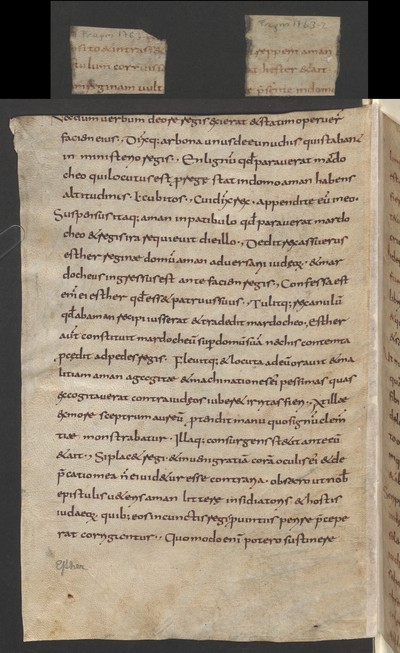 sito & intrass&
tulum corruiss
m reginam uult
repperit aman
hester & ait
p̄sente indomo
Necdum uerbum deore regis exierat & statim operuer̄
faciem eius . Dixitq; arbona unus de eunuchis qui stabant
in ministerio regis . En lignū qd̄ parauerat mardo
cheo qui locutus est p̱ rege stat indomo aman habens
altitudinis . l . cubitos . Cui dix̄ rex . appendite eū ineo .
Suspensus itaq; aman inpatibulo qd̄ parauerat mardo
cheo & regis ira requieuit die illo . Dedit rex assuerus
esther regine domū aman aduersarii iudeoꝝ . & mar
docheus ingressus est ante faciem regis . Confessa est
eni ei esther qd̄ ess& patruus suus . Tulitq; rex anulū
qd̄ ab aman recipi iusserat & tradidit mardocheo . Esther
aut̄ constituit mardocheū sup domū suā nechis contenta
p̱cidit ad pedes regis . Fleuitq; & locuta ad eū orauit & ma
litiam aman agagitae & machinationes ei pessimas quas
excogitauerat contra iudeos iuber& irritas fieri . At ille
ex more sceptrum aureū p̱tendit manu quo signū clem̄
tiae monstrabatur . Illaq; consurgens st&it ante eū
& ait . Si plac& regi & inueni gratiā corā oculis ei & de
p̄catio mea n̄ ei uid&ur esse contraria . obsecro ut nouis
epistulis u&eres aman litterę insidiatoris & hostis
iudaeoꝝ . quib; eos incunctis regis prouintiis perire p̄cepe
rat corrigentur . Quomodo enī potero sustinere
Esther